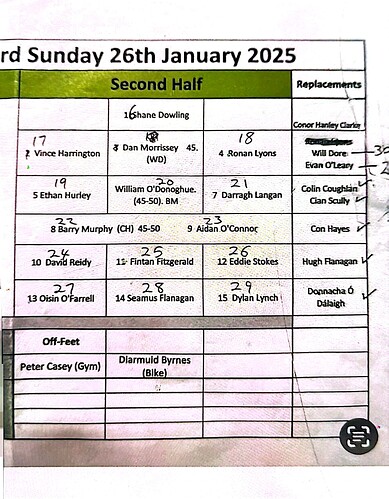 rd Sunday 26th January 2025
Second Half
Replacements
16
1 Shane Dowling
Conor Hanley Clarke
17
2 Vince Harrington
3 Dan Morrissey 45.
(WD)
18
4 Ronan Lyons
Will Dore 30
Evan O'Leary
19
5 Ethan Hurley
20
William O'Donoghue.
(45-50). BM
21
7 Darragh Langan
Colin Coughlan
Cian Scully
22
8 Barry Murphy (CH) 45-50
23
9 Aidan O'Connor
Con Hayes
24
10 David Reidy
25
11 Fintan Fitzgerald
26
12 Eddie Stokes
Hugh Flanagan
27
13 Oisin O'Farrell
28
14 Seamus Flanagan
29
15 Dylan Lynch
Donnacha Ó
Dálaigh
Off-Feet
Peter Casey (Gym)
Diarmuid Byrnes
(Bike)